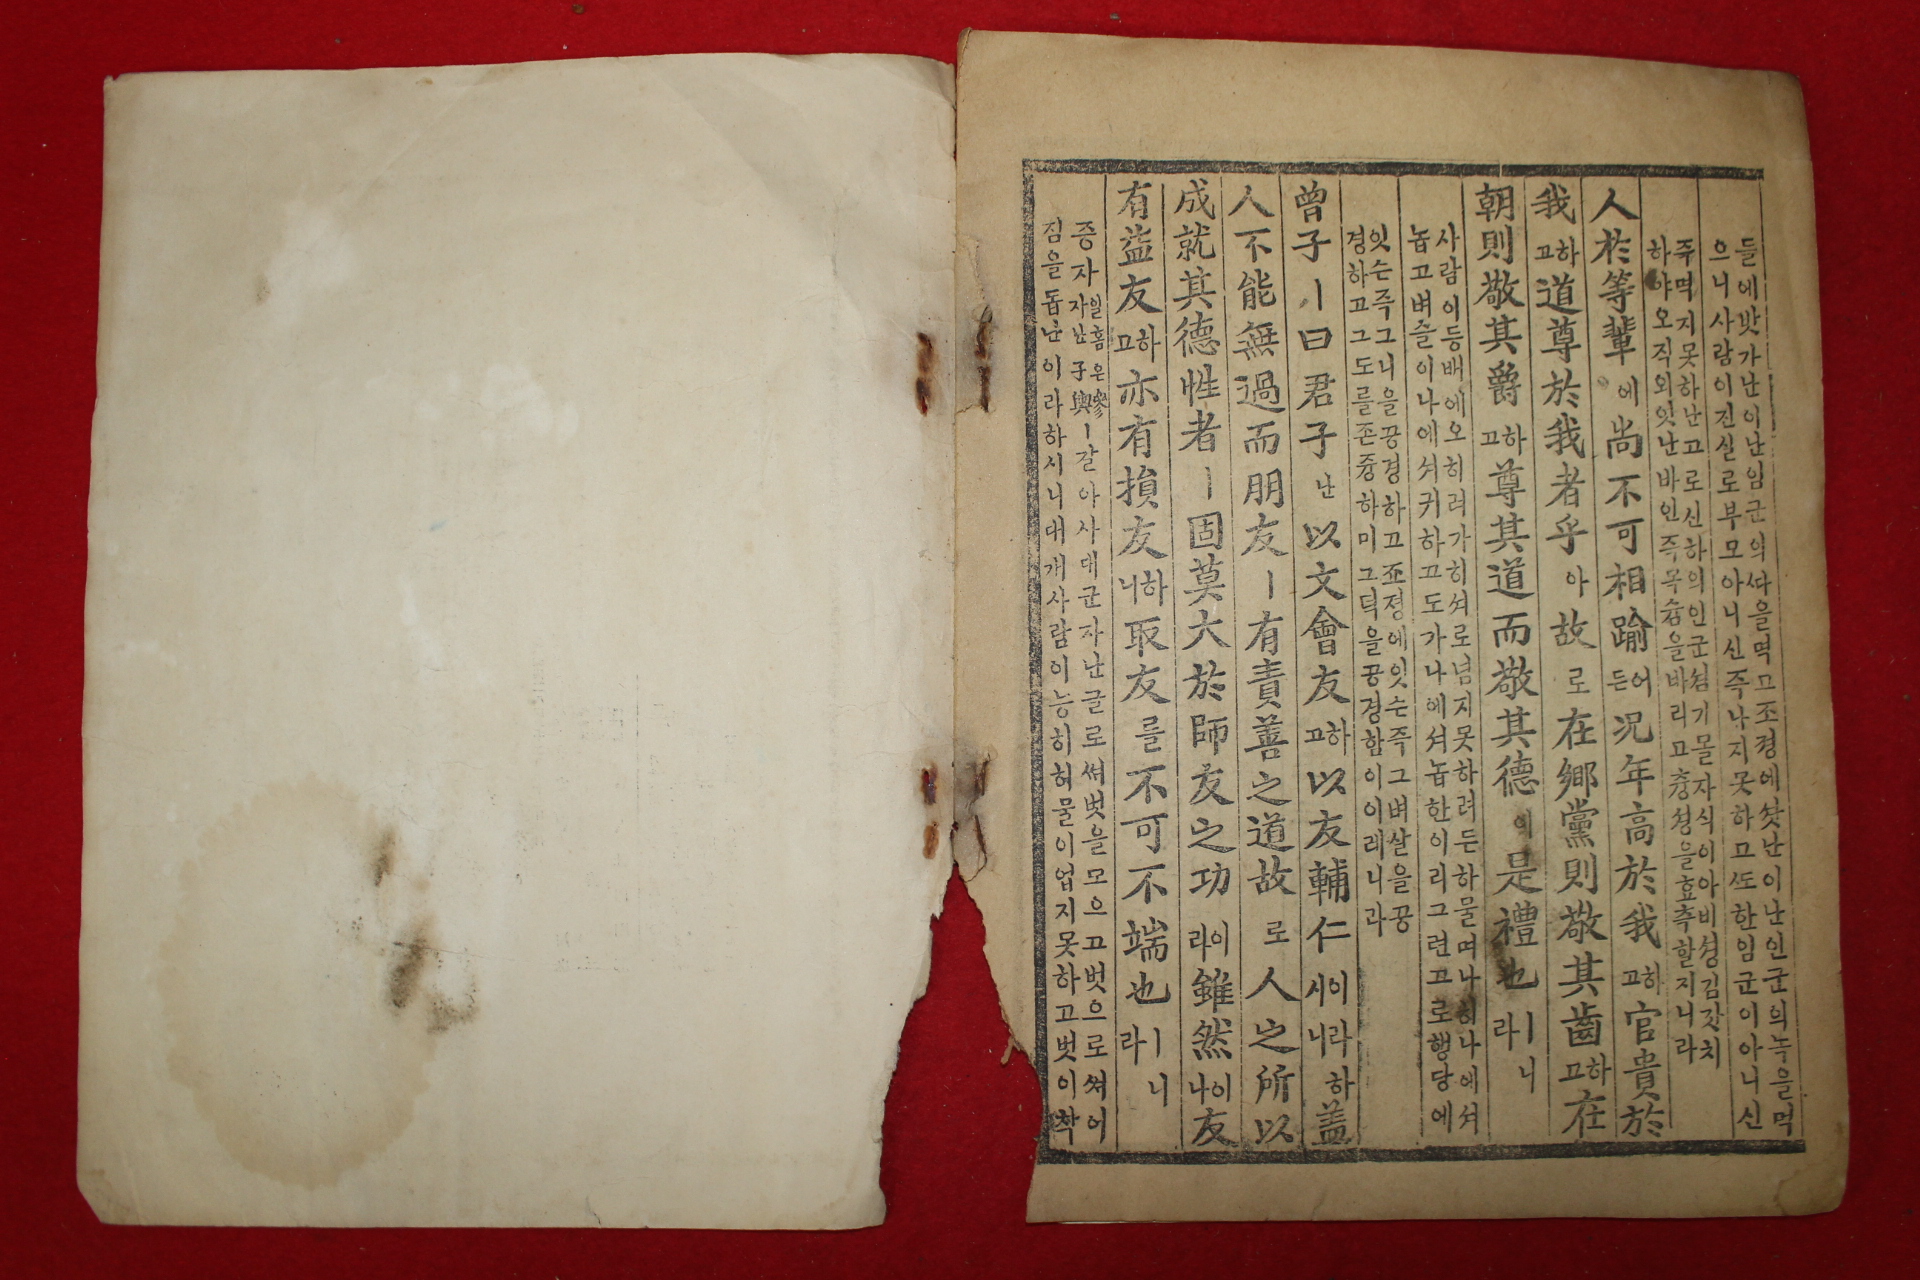 들에밧가난이난임군의싸을먹고조졍에삿난이난인군의녹을먹
으니사람이진실로부모아니신즉나지못하고ᄯᅩ한임군이아니신
쥭먹지못하난고로신하의인군셤기몰자식이아비셩김갓치
하야오직외잇난바인즉목슘을바리고츙셩을효측할지니라
人於等輩에尙不可相踰어든况年高於我하고官貴於
我하고道尊於我者乎아故로在鄕黨則敬其齒하고在
朝則敬其爵하고尊其道而敬其德이是禮也ㅣ니라
사람이등배에오히려가히셔로넘지못하려든하물며나히나에셔
놉고벼슬이나에셔귀하고도가나에셔놉한이리그런고로행당에
잇슨즉그니을공경하고죠졍에잇슨즉그벼살을공
경하고그도를존즁하미그덕을공경함이이레니라
曾子ㅣ曰君子난以文會友하고以友輔仁이라하시니盖
人不能無過而朋友ㅣ有責善之道故로人之所以
成就其德性者ㅣ固莫大於師友之功이라雖然이나友
有益友하고亦有損友하니取友를不可不端也ㅣ니라
증자일홈은參자난子輿ㅣ갈아사대군자난글로써벗을모으고벗으로써어
짐을돕난이라하시니대개사람이능히허물이업지못하고벗이착